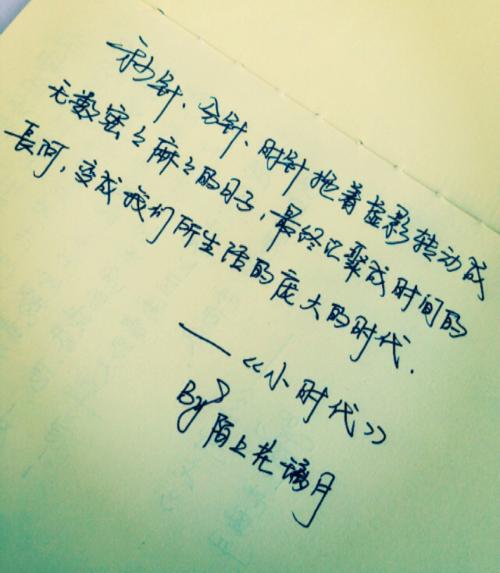 秒针、分针、时针拖着虚影转动成
无数密々麻々的日子，最终汇聚成时间的
長河，变成我们所生活的庞大的时代．
——《小时代》
By 陌上花谪月